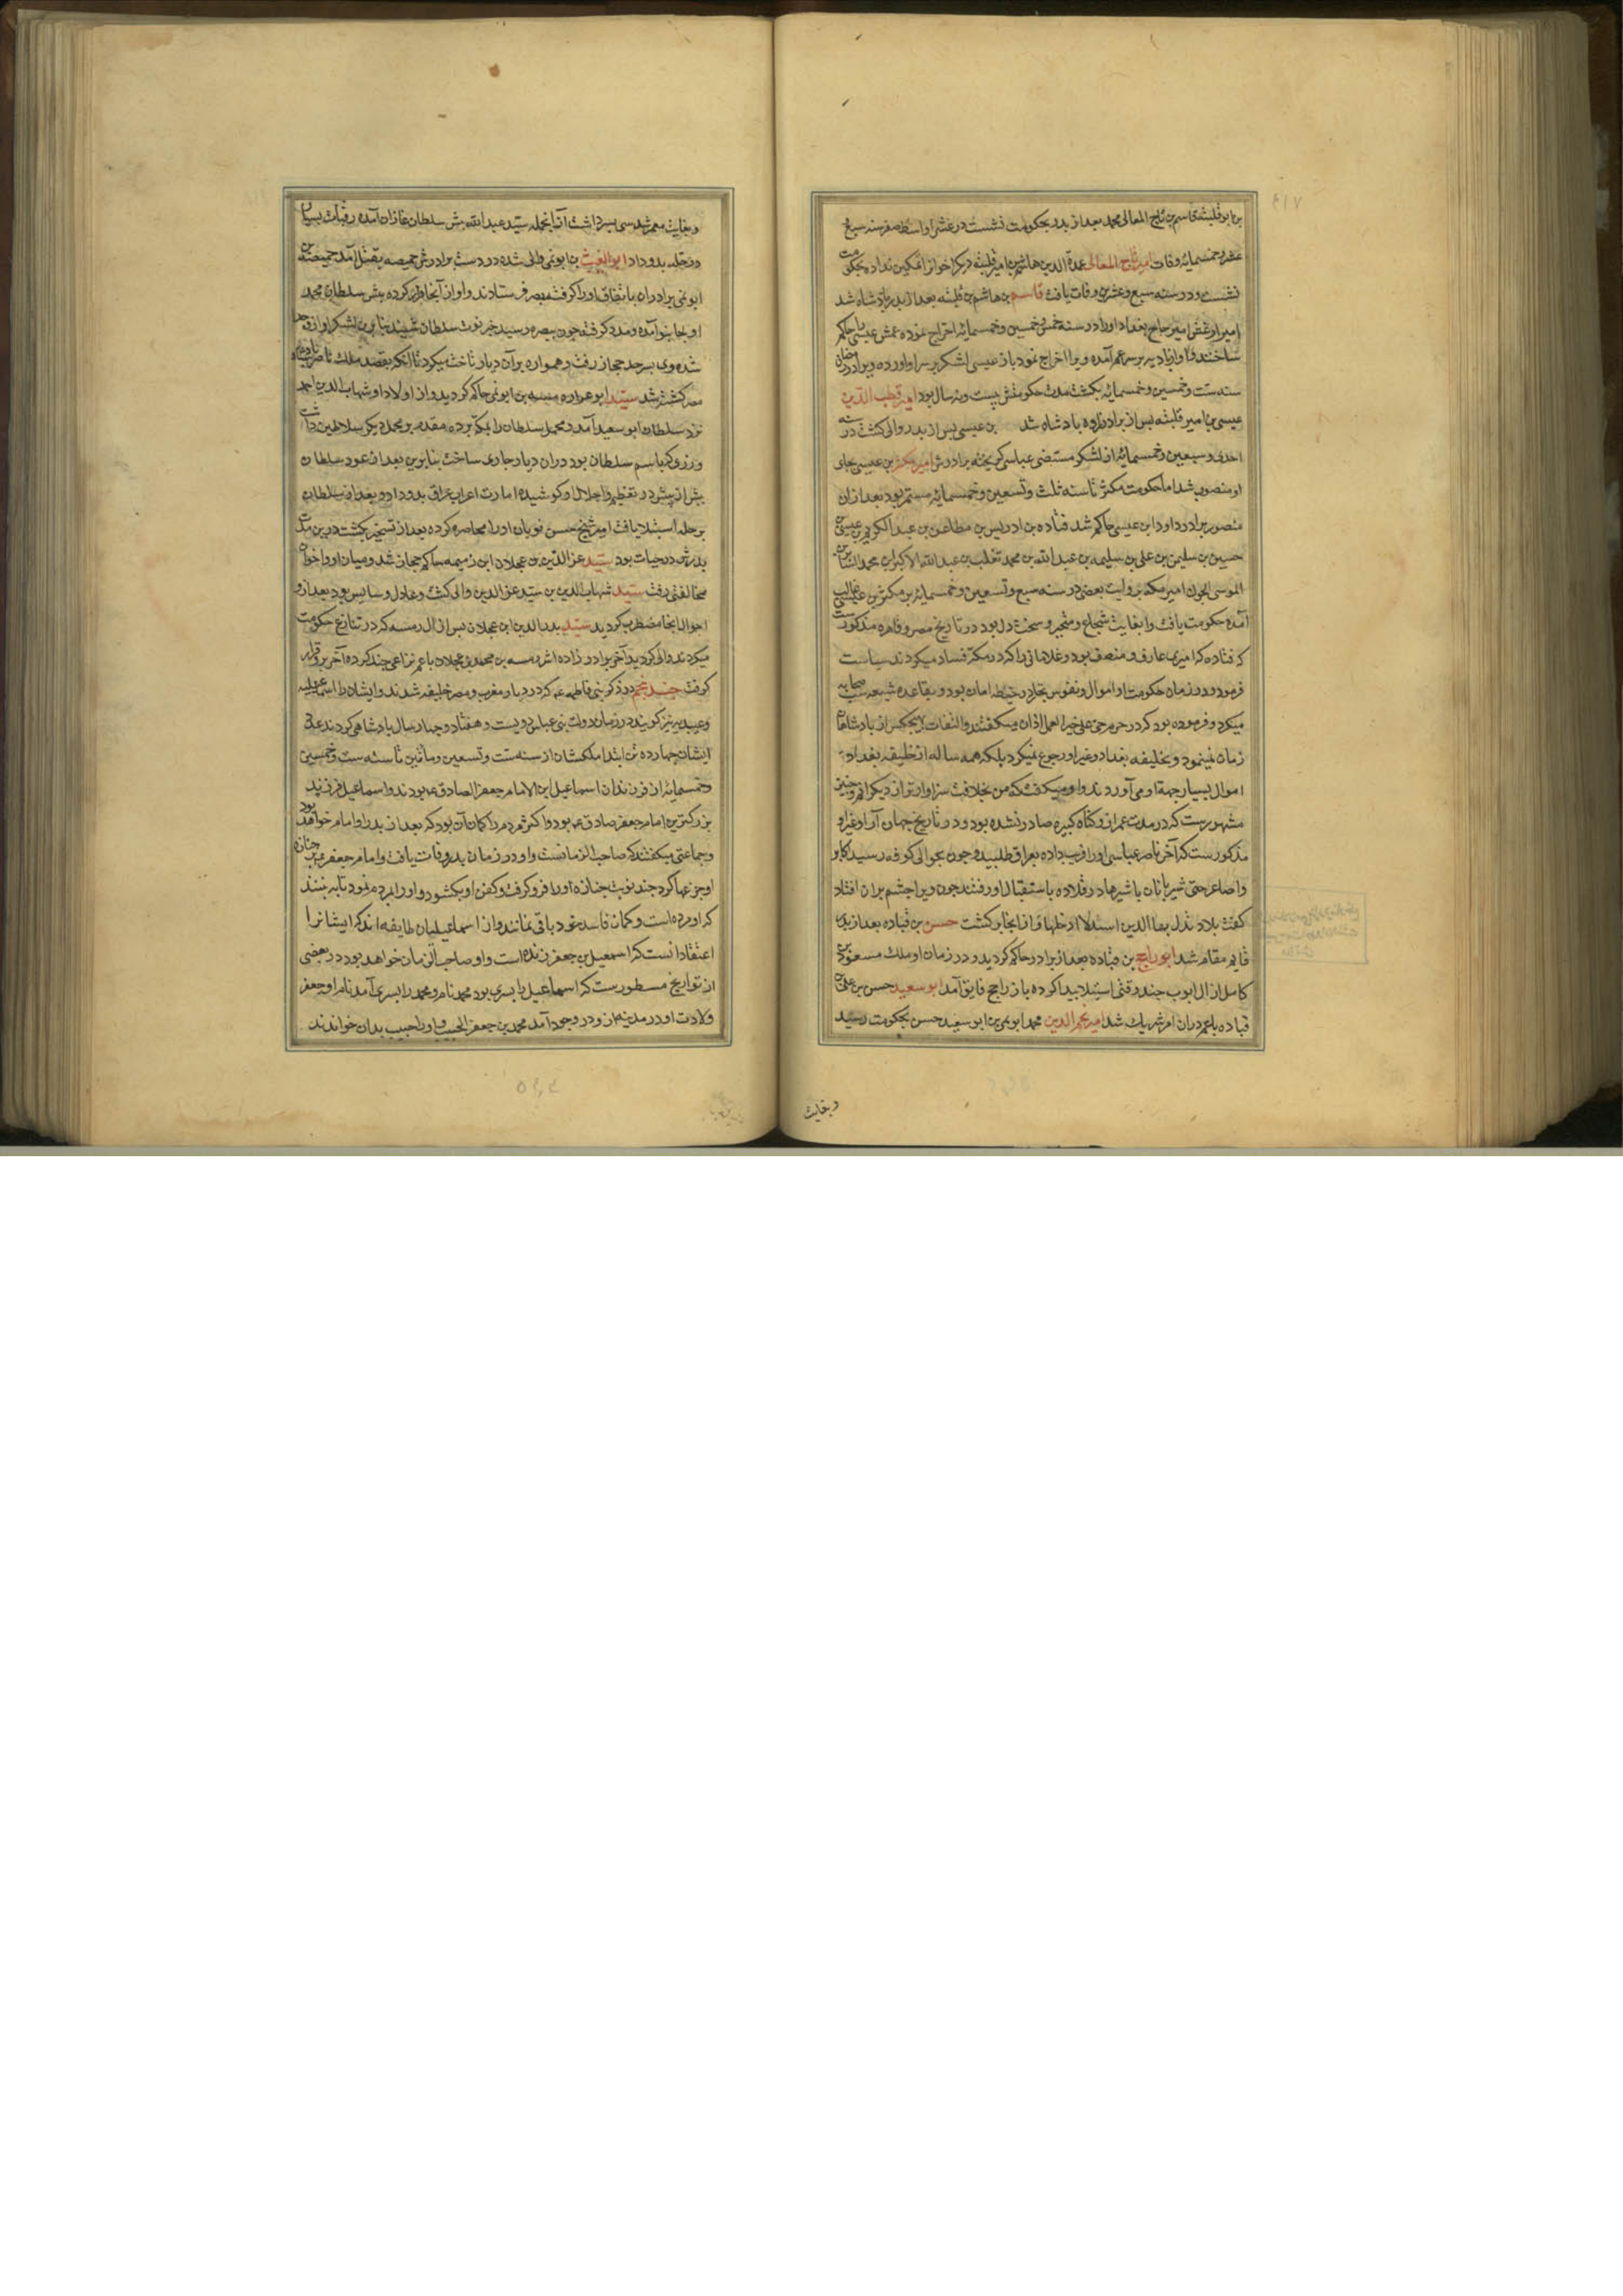 بن ابو فلیته قاسم بن تاج المعالی محمد بعد از پدر بحکومت نشست در عشر اواسط صفر سنه سبع
عشر و خمسمایه وفات امیر تاج المعالی عمدة الدین هاشم بن امیر فلیته دیکر اخوانرا تمکین نداد بحکومت
نشست و در سنه سبع و عشرین وفات یافت قاسم بن هاشم بن فلیته بعد از پدر پادشاه شد
امیر ارغش امیر حاج بغداد اورا در سنه خمس و خمسین و خمسمایه اخراج نموده عمش عیسی را حاکم
ساختند و او از بادیه بر سر عم آمده ویرا اخراج نمود باز عیسی لشکر بر سر او آورده ویرا در رمضان
سنه ست و خمسین و خمسمایه بکشت مدت حکومتش بیست و نه سال بود امیر قطب الدین
عیسی بن امیر فلیته پس از برادرزاده پادشاه شد بن عیسی پس از پدر والی کشت در سنه
احدی و سبعین و خمسمایه از لشکر مستضی عباسی کریخته برادرش امیر مکثر بن عیسی بجای
او منصوب شد اما حکومت مکثر تا سنه ثلث و تسعین و خمسمایه مستمر بود بعد ازان
منصور برادر داود ابن عیسی حاکم شد قتاده بن ادریس بن مطاعن بن عبد الکریم بن عیسی بن
حسین بن سلیمن بن علی بن سلیمه بن عبد الله بن محمد تغلب بن عبد الله الاکبر ابن محمد الثایر بن
الموسی الجون امیر مکه بروایت بعضی در سنه سبع و تسعین و خمسمایه بر مکثر بن عیسی غالب
آمده حکومت یافت و ابغایت شجاع و متجبر و سخت دل بود در تاریخ مصر و قاهره مذکورست
که قتاده کرا میری عارف و منصف بود و غلامانی را که در مکه فساد میکردند سیاست
فرمود و در زمان حکومت او اموال و نفوس تجار در حیطه امان بود و بقاعده شیعه سب صحابه
میکرد و فرموده بود که در حرم حی علی خیر العمل اذان میکفتند و التفات بهیچکس از پادشاهان
زمان نمینمود و بخلیفه بغداد و غیر او رجوع نمیکرد بلکه همه ساله از خلیفه بغداد
اموال بسیار جهة او می آوردند و او میکفت که من بخلافت سزاوارتر از دیکرانم و چنین
مشهورست که در مدت عمر ازو کناه کبیره صادر نشده بود و در تاریخ جهان آرا و غیر او
مذکورست که آخر ناصر عباسی اورا فریب داده بعراق طلبید و چون بحوالی کوفه رسید اکابر
و اصاغر حتی شیربانان با شیرها در قلاده باستقبال او رفتند چون ویرا چشم بران افتاد
کفت بلاد تذل بها الدین اسد لا ادخلها و از انجا برکشت حسن بن قتاده بعد از پدر
قایم مقام شد ابو راجح بن قتاده بعد از برادر حاکم کردید و در زمان او ملک مسعود بن
کامل از ال ایوب چند وقتی استیلا پیدا کرده باز راجح فایق آمد ابو سعید حسن بن علی بن
قتاده با عم دران امر شریک شد امیر نجم الدین محمد ابو نمی بن ابو سعید حسن بحکومت رسید
و بغایت
و بغایت معمر شد سی پسر داشت از انجمله سید عبد الله پیش سلطان غازان آمده رقبات بسیار
در حله بدو داد ابو الغیث بن ابو نمی والی شده در دست برادرش حمیضه بقتل آمد حمیضه بن
ابو نمی برادران باتفاق اورا کرفته بمصر فرستادند و او از آنجا فرار کرده پیش سلطان محمد
اولجایتو آمده و مدد کرفته چون ببصره رسید خبر فوت سلطان شنید بنابرین لشکر از او جدا
شده وی بسرحد حجاز رفت و همواره بر آن دیار تاخت میکرد تا آنکه بقصد ملک ناصر پادشاه
مصر کشته شد سید ابو عراده رمیسه بن ابو نمی حاکم کردید و از اولاد او شهاب الدین احمد
نزد سلطان ابو سعید آمد و محمل سلطان را بمکه برده مقدم بر محمل دیکر سلاطین داشت
و زر و کیاسم سلطان بود دران دیار جاری ساخت بنابرین بعد از عود سلطان
بیش از پیش در تعظیم و اجلال او کوشیده امارت اعراب عراق بدو داد و بعد از سلطان
بر حله استیلا یافت امیر شیخ حسن نویان اورا محاصره کرده بعد از تسخیر بکشت درین مدت
پدرش در حیات بود سید عز الدین بن عجلان ابن رمیمه حاکم حجاز شد و میان او و اخوان
مخالفتی رفت سید شهاب الدین بن سید عز الدین والی کشت و عادل و سایس بود بعد ازو
احوال انجا مضطرب کردید سید بدر الدین ابن عجلان پس از ال رمیسه که در تنازع حکومت
میکردند والی کردید آخر برادرزاده اش رمیسه بن محمد بن عجلان با عم نزاعی چند کرده آخر برو قرار
کرفت جند پنجم در ذکر بنی فاطمه عم که در دیار مغرب و مصر خلیفه شدند و ایشان را اسماعیلیه
و عبیدیه نیز کویند در زمان دولت بنی عباس دویست و هفتاد و چهار سال پادشاهی کردند عدد
ایشان چهارده تن ابتدا ملکشان از سنه ست و تسعین و مأتین تا سنه ست و خمسین
و خمسمایه از فرزندان اسماعیل ابن الامام جعفر الصادق عم بودند و اسماعیل فرزند
بزرکترین امام جعفر صادق عم بود و اکثر مردم را کمان آن بود که بعد از پدر او امام خواهد بود
و جماعتی میکفتند که صاحب الزمانست و او در زمان پدر وفات یافت و امام جعفر بر جنازه
او جزعها کرد چند نوبت جنازه اورا فرو کرفت و کفن او بکشود و اورا بمردم نمود تا به بینند
که او مرده است و کمان فاسد خود باقی نمانند و از اسماعیلیان طایفه اند که ایشانرا
اعتقاد انست که اسمعیل بن جعفر زنده است و او صاحب الزمان خواهد بود در بعضی
از تواریخ مسطورست که اسماعیل را پسری بود محمد نام و محمد را پسری آمد نام او جعفر
ولادت او در مدینه ازو در وجود آمد محمد بن جعفر الحبیب و اورا حبیب بدان خواندند